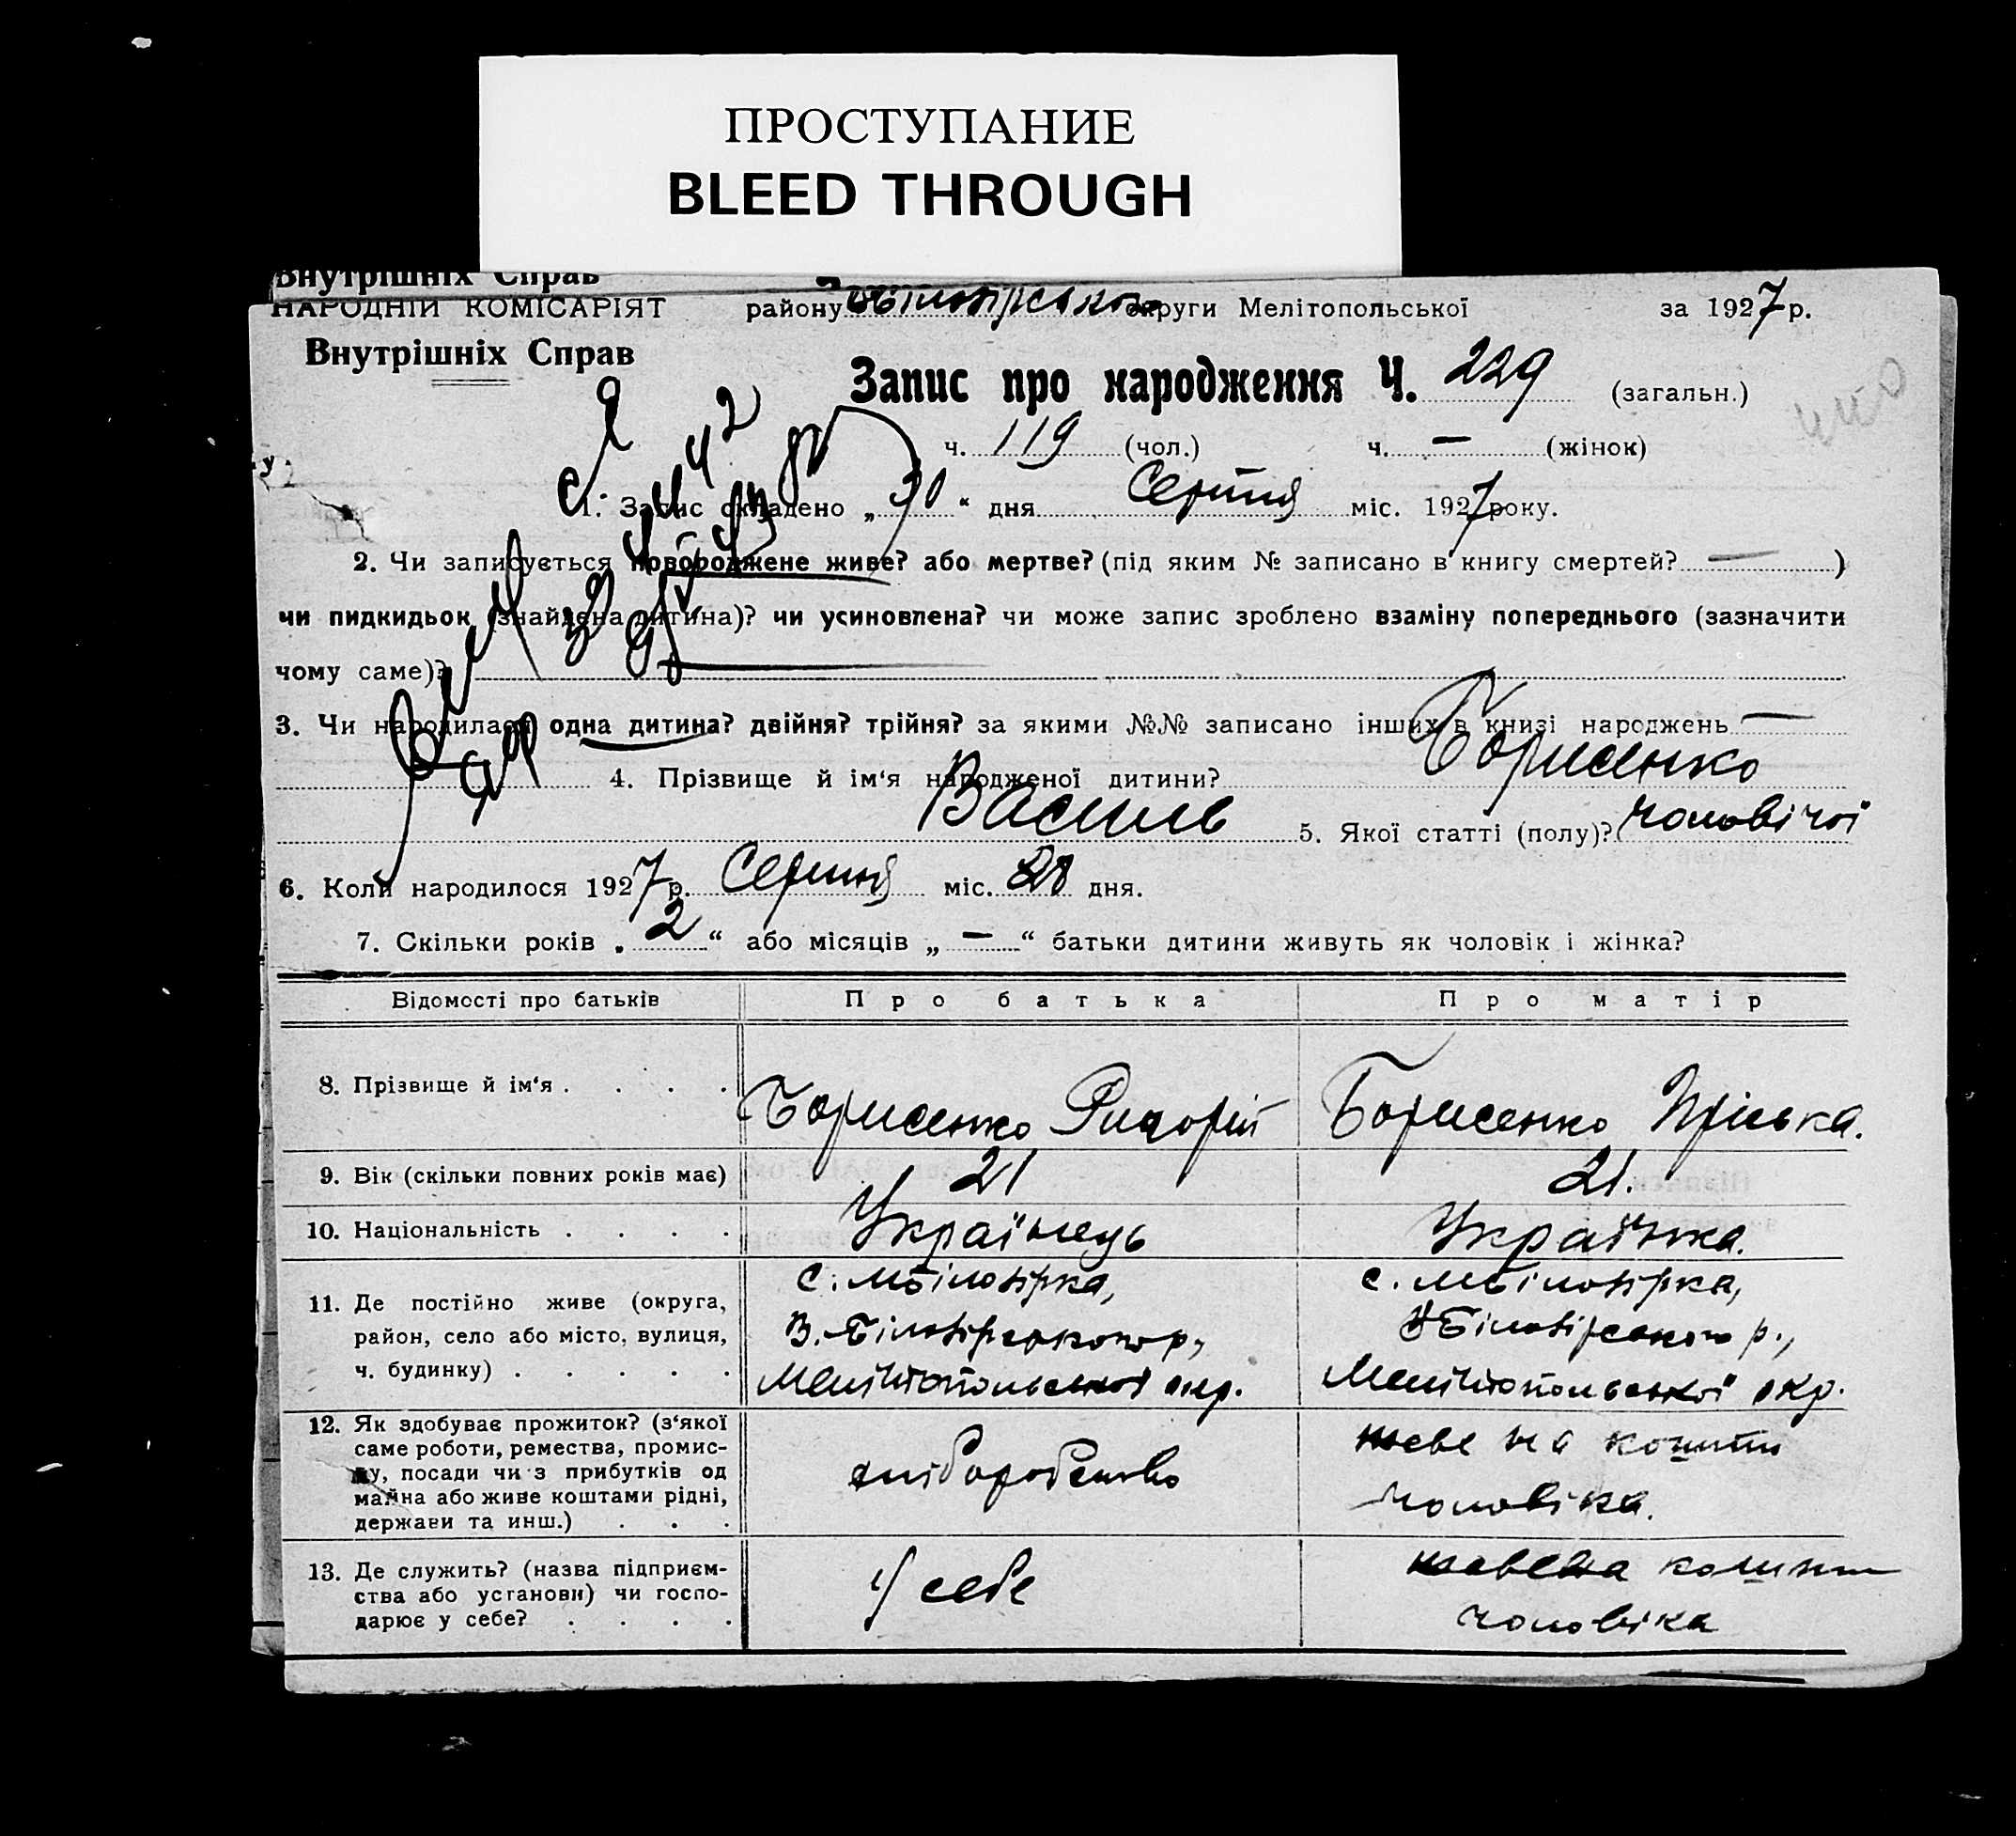 ПРОСТУПАНИЕ
BLEED THROUGH
Внутрішніх Справ
НАРОДНІЙ КОМІСАРІЯТ району округи Мелітопольської за 1927 р.
Внутрішніх Справ
Запис про народження Ч. 229 (загальн.)
ч. 119 (чол.) ч. — (жінок)
1. Запис складено „30“ дня Серпня міс. 1927 року.
2. Чи записується новороджене живе? або мертве? (під яким № записано в книгу смертей? — )
чи пидкидьок (знайдена дитина)? чи усиновлена? чи може запис зроблено взаміну попереднього (зазначити
чому саме)?
3. Чи народилася одна дитина? двійня? трійня? за якими №№ записано інших в книзі народжень —
4. Прізвище й ім‘я народженої дитини? Борисенко
Василь 5. Якої статті (полу)? чоловічої
6. Коли народилося 1927 р. Серпня міс. 28 дня.
7. Скільки років „2“ або місяців „—“ батьки дитини живуть як чоловік і жінка?
Відомості про батьків Про батька Про матір
8. Прізвище й ім‘я . . . . Борисенко Борисенко Пріська.
9. Вік (скільки повних років має) 21 21.
10. Національність . . . . Українець Українка.
11. Де постійно живе (округа, с. М Білозірка, с. М Білозірка,
район, село або місто, вулиця, В. Білозірського р., В Білозірського р.,
ч. будинку) . . . . . Мелітопольської окр. Мелітопольської окр.
12. Як здобуває прожиток? (з‘якої
саме роботи, ремества, промис-
лу, посади чи з прибутків од
майна або живе коштами рідні,
держави та инш.) . . .
хліборобство
живе на кошти
чоловіка.
13. Де служить? (назва підприєм-
ства або установи) чи госпо-
дарює у себе? . . . .
У себе
живе на кошти
чоловіка